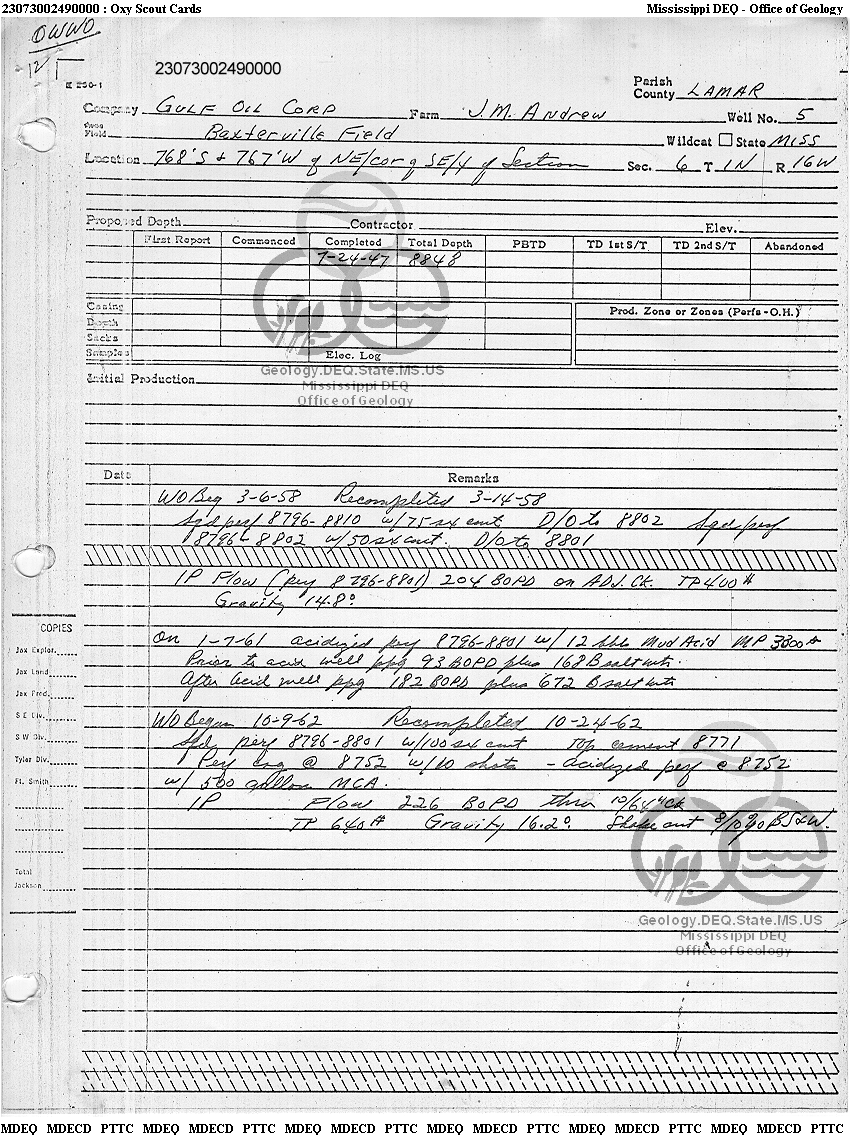 23073002490000 : Oxy Scout Cards Mississippi DEQ - Office of Geology
OWWO
12
23073002490000
Parish
County LAMAR
Company GULF OIL CORP Farm J.M. Andrew Well No. 5
Field Baxterville Field Wildcat State MISS
Location 768'S & 767'W of NE/cor of SE/4 of Section Sec. 6 T 1N R 16W
Proposed Depth Contractor Elev.
First Report Commenced Completed Total Depth PBTD TD 1st S/T TD 2nd S/T Abandoned
7-24-47 8848
Casing Prod. Zone or Zones (Perfs - O.H.)
Depth
Sacks
Samples Elec. Log
Geology.DEQ.State.MS.US
Mississippi DEQ
Office of Geology
Initial Production
Date Remarks
WO Beg 3-6-58 Recompleted 3-14-58
Sqd perf 8796-8810 w/75 sx cmt D/O to 8802 Sqd perf
8796-8802 w/50 sx cmt. D/O to 8801
IP Flow (perf 8796-8801) 204 BOPD on ADJ. Ck. TP 400#
Gravity 14.8°
COPIES
On 1-7-61 acidized perf 8796-8801 w/ 12 bbls Mud Acid MP 3300#
Jax Explor.
Prior to acid well ppg 93 BOPD plus 168 B salt wtr.
Jax Land
After acid well ppg 182 BOPD plus 672 B salt wtr
Jax Prod.
S E Div.
WO Began 10-9-62 Recompleted 10-24-62
S W Div.
Sqd. perf 8796-8801 w/100 sx cmt Top cement 8771
Tyler Div.
Perf csg @ 8752 w/10 shots - acidized perf @ 8752
Ft. Smith
w/ 500 gallons MCA.
IP Flow 226 BOPD thru 10/64" Ck
TP 640# Gravity 16.2° Shake out 8/10% BS&W.
Total
Jackson
Geology.DEQ.State.MS.US
Mississippi DEQ
Office of Geology
MDEQ MDECD PTTC MDEQ MDECD PTTC MDEQ MDECD PTTC MDEQ MDECD PTTC MDEQ MDECD PTTC MDEQ MDECD PTTC